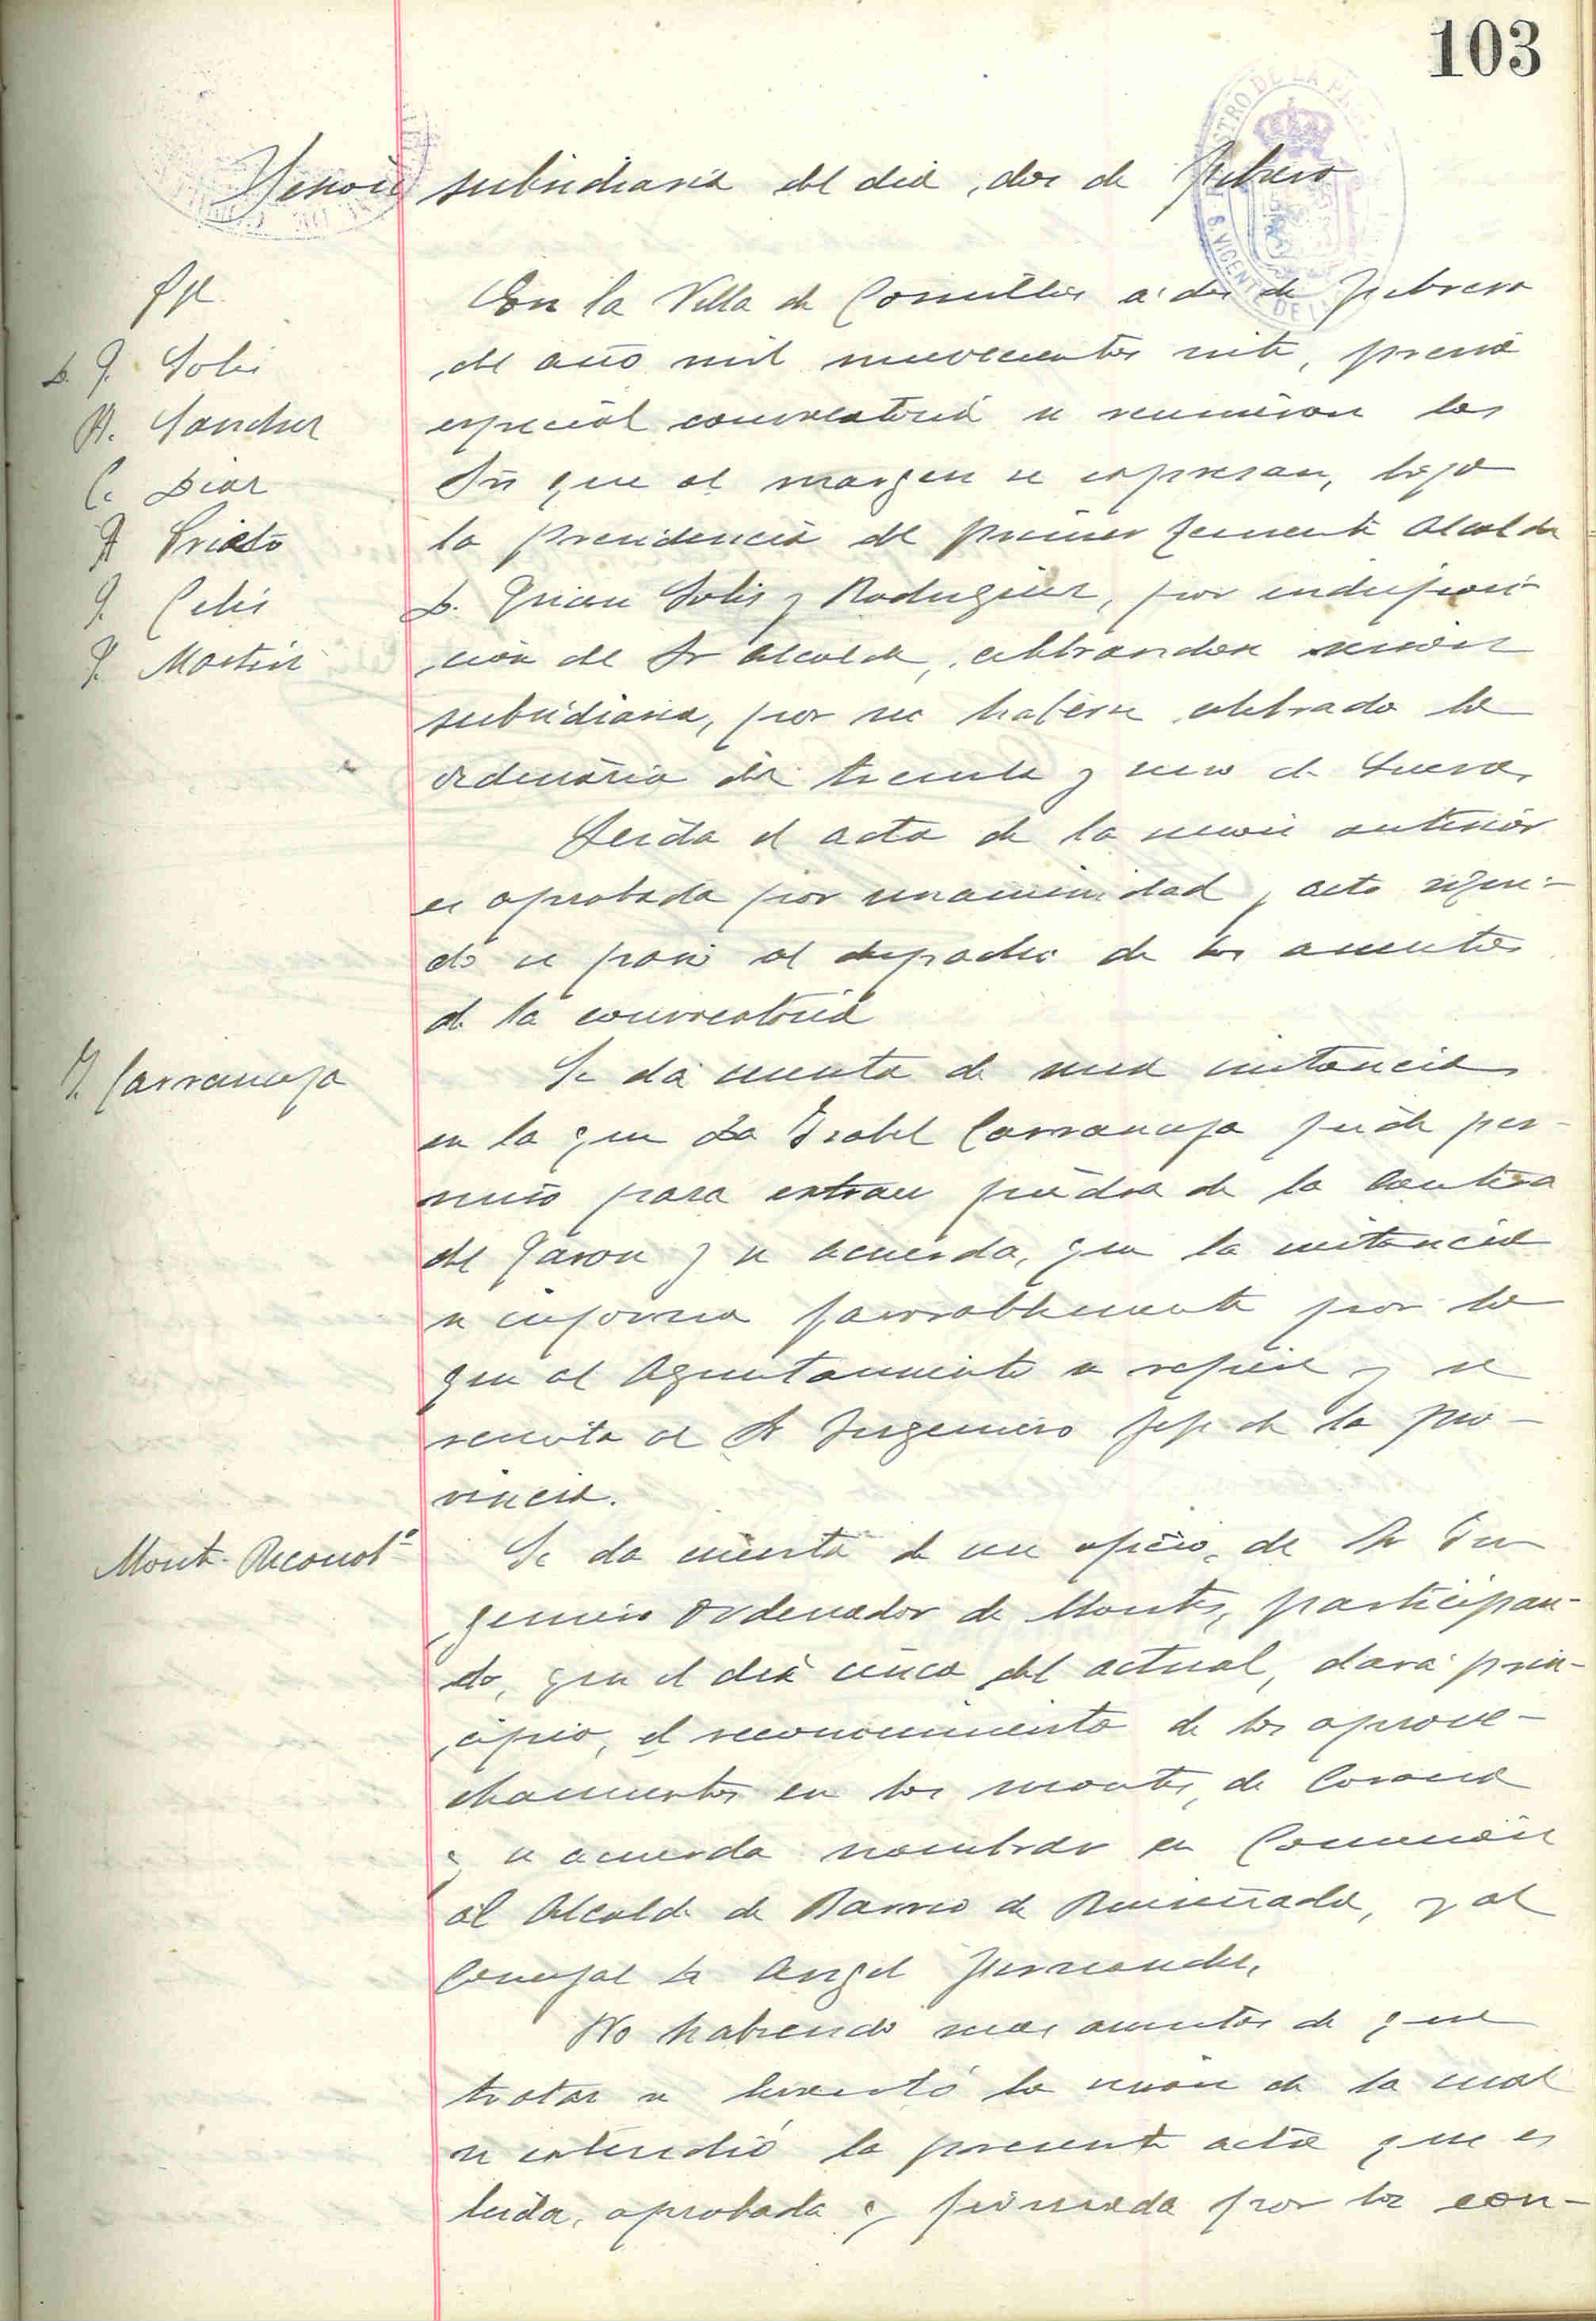 103
Sesion subsidiaria del dia dos de Febrero
D. J. Solis
A. Sanchez
C. Diaz
A Prieto
J. Celis
J. Martin
En la Villa de Comillas a dos de Febrero
del año mil novecientos siete, previa
especial convocatoria se reunieron los
Srs que al margen se expresan, bajo
la Presidencia del primer Teniente Alcalde
D. Juan Solis y Rodriguez, por indisposi-
cion del Sr Alcalde, celebrandose sesion
subsidiaria, por no haberse celebrado la
ordinaria de treinta y uno de Enero.
Leida el acta de la sesion anterior
es aprobada por unanimidad y acto segui-
do se pasó al despacho de los asuntos
de la convocatoria
I. Carranceja
Se dá cuenta de una instancia
en la que Da Isabel Carranceja pide per-
miso para extraer piedra de la Cantera
del y se acuerda, que la instancia
se informe favorablemente por lo
que al Ayuntamiento se refiere y se
remita al Sr Ingeniero Jefe de la pro-
vincia.
Monte Reconoto
Se da cuenta de un oficio de Sr In
geniero Ordenador de Montes, participan-
do, que el dia cinco del actual, dará prin-
cipio, el reconocimiento de los aprove-
chamientos en los montes, de Corona
y se acuerda nombrar en Comision
al Alcalde de Barrio de Ruiseñada, y al
Concejal D. Angel Fernandez.
No habiendo mas asuntos de que
tratar se levantó la sesion de la cual
se extendió la presente acta que es
leida, aprobada y firmada por los con-